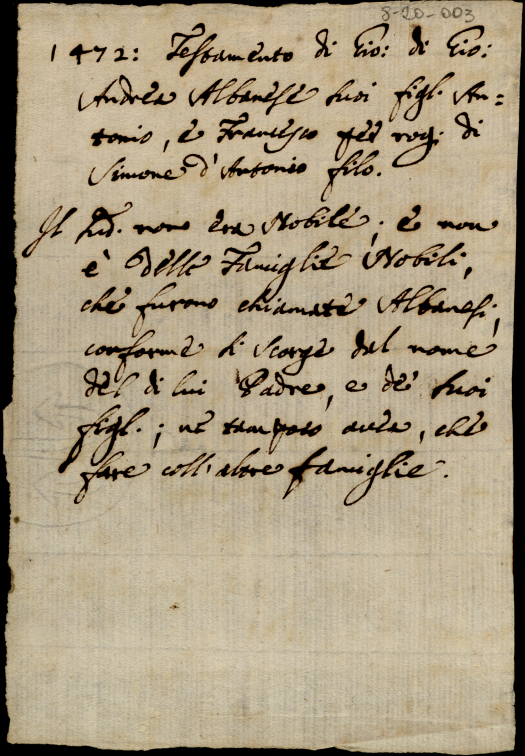 8-20-003
1472: Testamento di Gio: di Gio:
Andrea Albanese suoi figl. An=
tonio, e Francesco per rog. di
Simone d'Antonio filo.
Il sud. non era Nobile; e non
è delle Famiglie Nobili,
che furono chiamate Albanesi,
conforme si scorge dal nome
del di lui Padre, e de' suoi
figl.; ne tampoco avea, che
fare coll'altre famiglie.